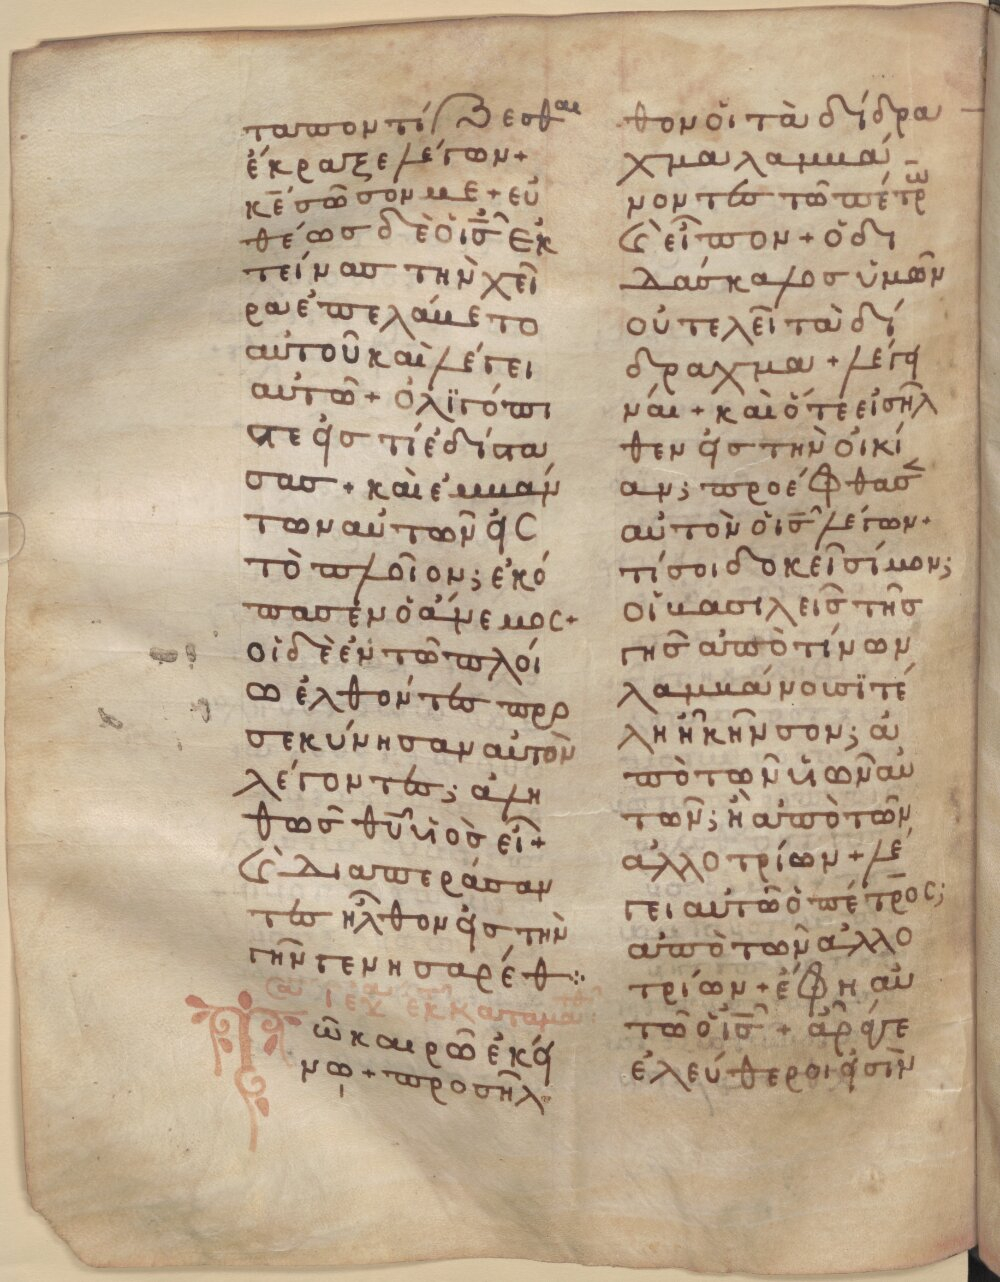 ταποντίζεσθαι
ἔκραξε λέγων +
κ̅ε σῶσον με + εὐ
θέως δὲ ὁ ι̅ς ἐκ
τείνας τὴν χεῖ
ρα ἐπελάβετο
αὐτοῦ καὶ λέγει
αὐτῶ + ὀλϊγόπι
στε εἰς τί ἐδίστα
σας + καὶ ἐμβάν
των αὐτῶν εἰς
τὸ πλοῖον; ἐκό
πασεν ὁ ἄνεμος +
οἱ δὲ ἐν τῶ πλοί
ω ἐλθόντες προ
σεκύνησαν αὐτὸν
λέγοντες; ἀλη
θῶς θ̅υ υἱὸς εἶ +
ϗ διαπεράσαν
τες ἦλθον εἰς τὴν
γῆν γενησαρέθ ⁘
ἐκ κατα μα̅τθ
Τῶ καιρῶ ἐκεί
νω + προσῆλ
θον οἱ τὰ δίδρα
χμα λαμβά
νοντες τῶ πέτρω
ϗ εἶπον + ὁ δι
δάσκαλος ὑμῶν
οὐ τελεῖ τὰ δί
δραχμα + λέγει
ναι + καὶ ὅτε εἰσῆλ
θεν εἰς τὴν οἰκί
αν; προέφθασεν
αὐτὸν ὁ ι̅ς λέγων +
τί σοι δοκεῖ σίμων;
οἱ βασιλεῖς τῆς
γῆς ἀπὸ τίνων
λαμβάνουσϊ τέ
λη ἢ κῆνσον; ἀ
πὸ τῶν υἱῶν αὐ
τῶν; ἢ ἀπὸ τῶν
ἀλλοτρίων + λέ
γει αὐτῶ ὁ πέτρος;
ἀπὸ τῶν ἀλλο
τρίων + ἔφη αὐ
τῶ ὁ ι̅ς + ἄρα γε
ἐλεύθεροι εἰσὶν